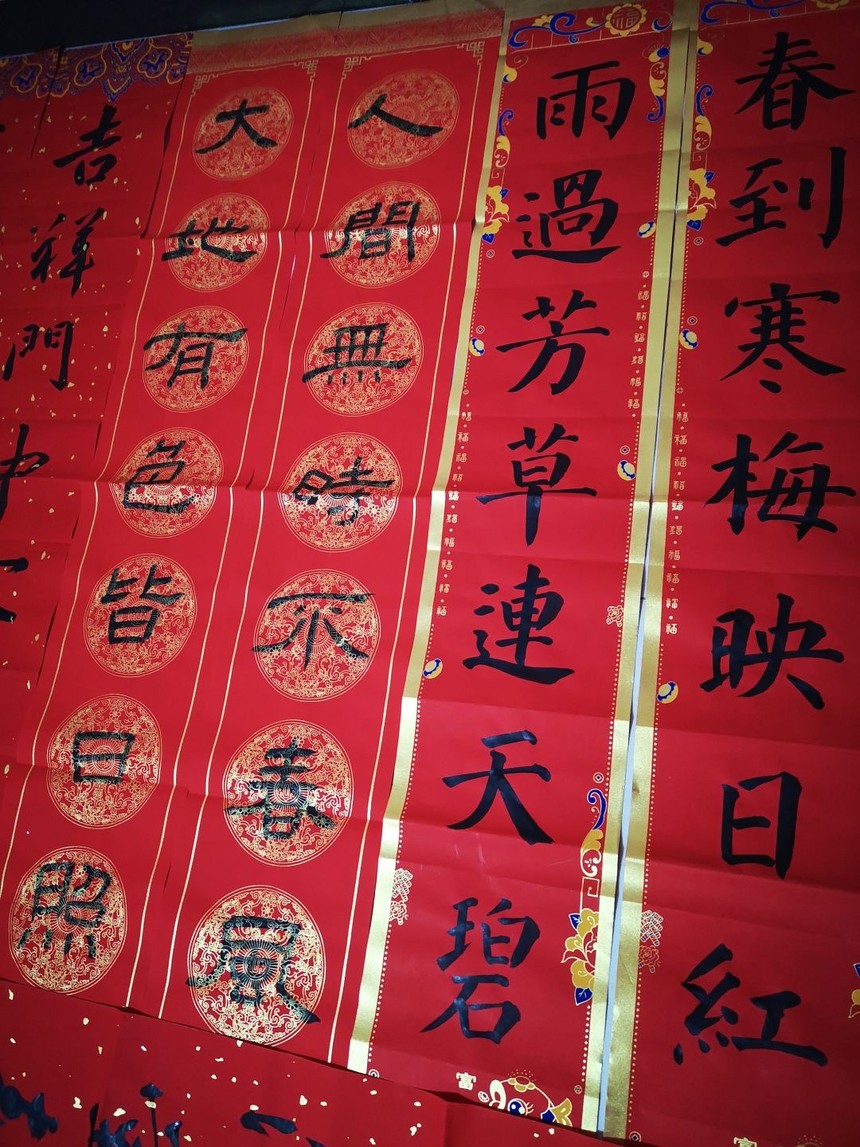 春到寒梅映日紅
雨過芳草連天碧
人間無時不春風
大地有色皆日照
吉祥門
福
富